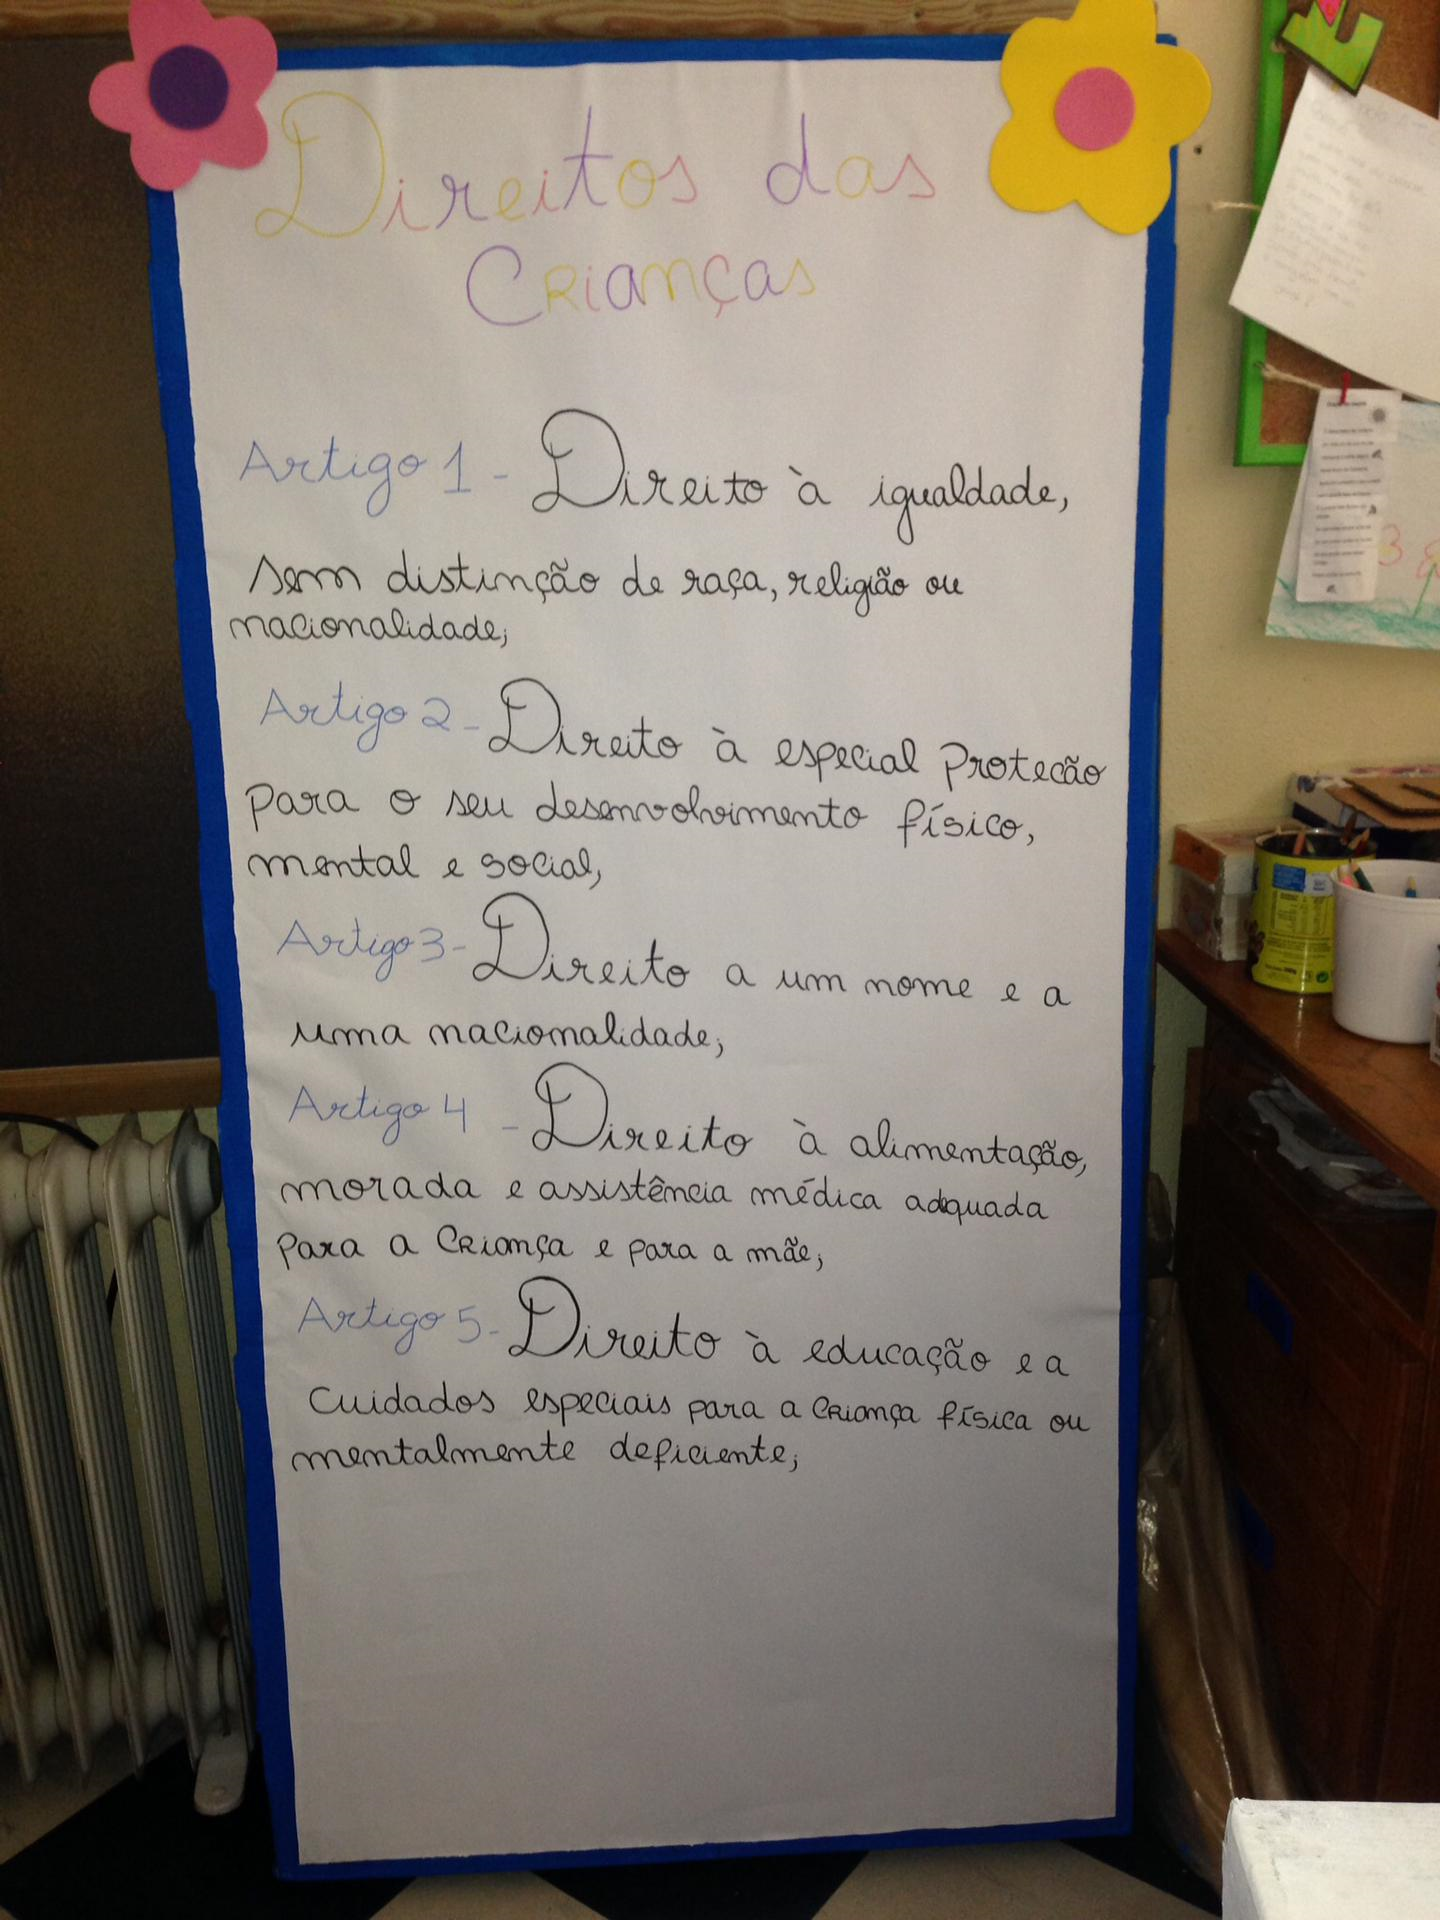 Direitos das
Crianças
Artigo 1 - Direito à igualdade,
sem distinção de raça, religião ou
nacionalidade;
Artigo 2 - Direito à especial proteção
para o seu desenvolvimento físico,
mental e social,
Artigo 3 - Direito a um nome e a
uma nacionalidade;
Artigo 4 - Direito à alimentação,
morada e assistência médica adequada
para a Criança e para a mãe;
Artigo 5 - Direito à educação e a
cuidados especiais para a criança física ou
mentalmente deficiente;